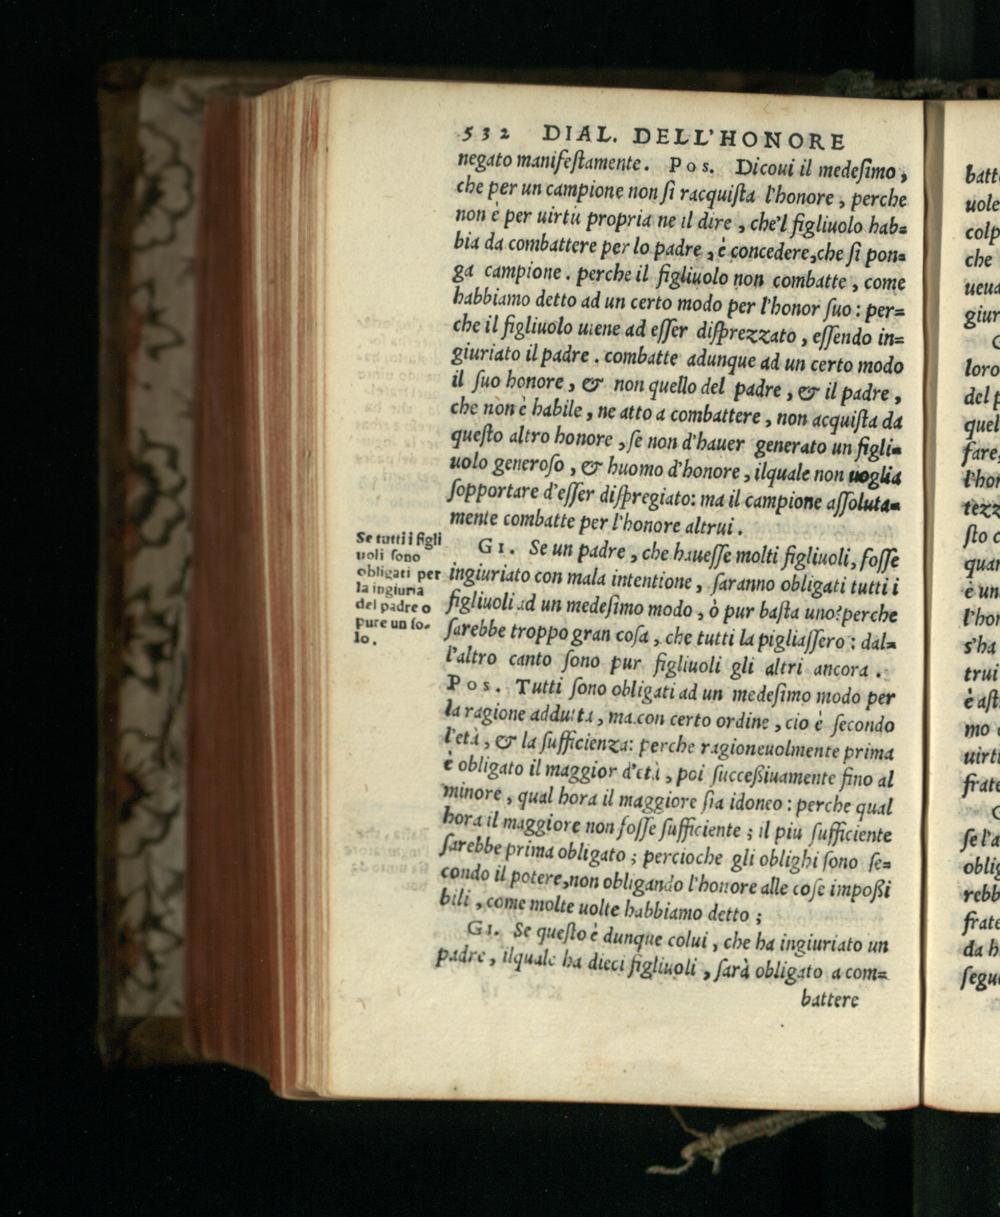 532 DIAL. DELL'HONORE
negato manifeſtamente. Pos. Dicoui il medeſimo,
che per un campione non ſi racquiſta l'honore, perche
non è per uirtù propria ne il dire, che'l figliuolo hab=
bia da combattere per lo padre, è concedere, che ſi pon=
ga campione. perche il figliuolo non combatte, come
habbiamo detto ad un certo modo per l'honor ſuo: per=
che il figliuolo uiene ad eſſer diſprezzato, eſſendo in=
giuriato il padre. combatte adunque ad un certo modo
il ſuo honore, & non quello del padre, & il padre,
che non è habile, ne atto a combattere, non acquiſta da
queſto altro honore, ſe non d'hauer generato un figli=
uolo generoſo, & huomo d'honore, ilquale non uoglia
ſopportare d'eſſer diſpregiato: ma il campione aſſoluta=
mente combatte per l'honore altrui.
Se tutti i figli
uoli ſono
obligati per
la ingiuria
del padre o
pure un ſo-
lo.
GI. Se un padre, che haueſſe molti figliuoli, foſſe
ingiuriato con mala intentione, ſaranno obligati tutti i
figliuoli ad un medeſimo modo, ò pur baſta uno? perche
ſarebbe troppo gran coſa, che tutti la pigliaſſero: dal=
l'altro canto ſono pur figliuoli gli altri ancora.
Pos. Tutti ſono obligati ad un medeſimo modo per
la ragione addutta, ma con certo ordine, cio è ſecondo
l'età, & la ſufficienza: perche ragioneuolmente prima
è obligato il maggior d'età, poi ſucceßiuamente fino al
minore, qual hora il maggiore ſia idoneo: perche qual
hora il maggiore non foſſe ſufficiente; il piu ſufficiente
ſarebbe prima obligato; percioche gli oblighi ſono ſe=
condo il potere, non obligando l'honore alle coſe impoßi
bili, come molte uolte habbiamo detto;
GI. Se queſto è dunque colui, che ha ingiuriato un
padre, ilquale ha dieci figliuoli, ſarà obligato a com=
battere
batt
uole
colp
che
ueua
giur
G
loro
del p
quel
fare,
l'hon
tezz
ſto c
quan
è un
l'hon
s'ha
trui
è aſt
mo
uirt
frate
G
ſe l'a
oblig
rebb
frate
da h
ſegu